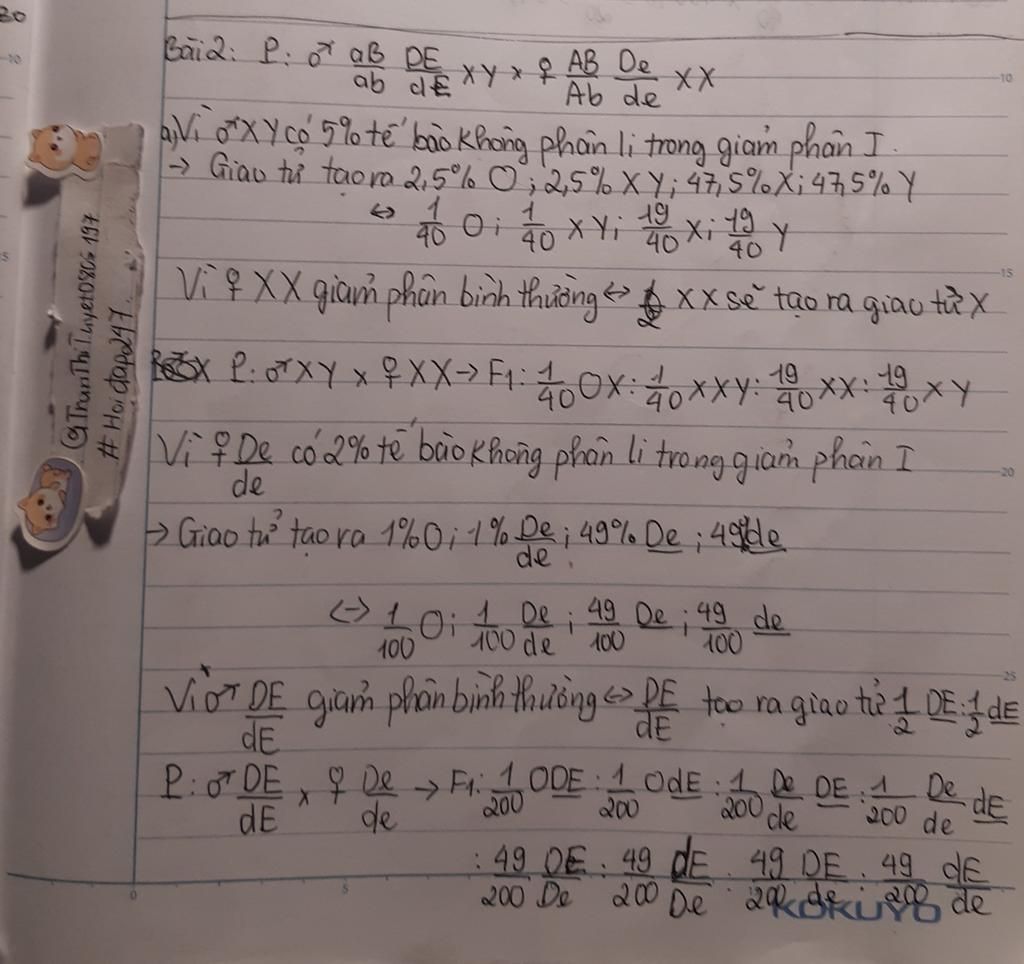 Bài 2: P: ♂ aB/ab DE/dE XY × ♀ AB/Ab De/de XX
a, Vì ♂ XY có 5% tế bào không phân li trong giảm phân I.
→ Giao tử tạo ra 2,5% O; 2,5% XY; 47,5% X; 47,5% Y
↔ 1/40 O; 1/40 XY; 19/40 X; 19/40 Y
Vì ♀ XX giảm phân bình thường ↔ XX sẽ tạo ra giao tử X
P: ♂ XY × ♀ XX → F1: 1/40 OX : 1/40 XXY : 19/40 XX : 19/40 XY
Vì ♀ De/de có 2% tế bào không phân li trong giảm phân I
→ Giao tử tạo ra 1% O; 1% De/de; 49% De; 49% de
↔ 1/100 O; 1/100 De/de; 49/100 De; 49/100 de
Vì ♂ DE/dE giảm phân bình thường ↔ DE/dE tạo ra giao tử 1/2 DE : 1/2 dE
P: ♂ DE/dE × ♀ De/de → F1: 1/200 ODE : 1/200 OdE : 1/200 De/de DE : 1/200 De/de dE
: 49/200 DE/De : 49/200 dE/De : 49/200 DE/de : 49/200 dE/de
KOKUYO
#Hoidap247
30
10
5
0
5
10
15
20
25